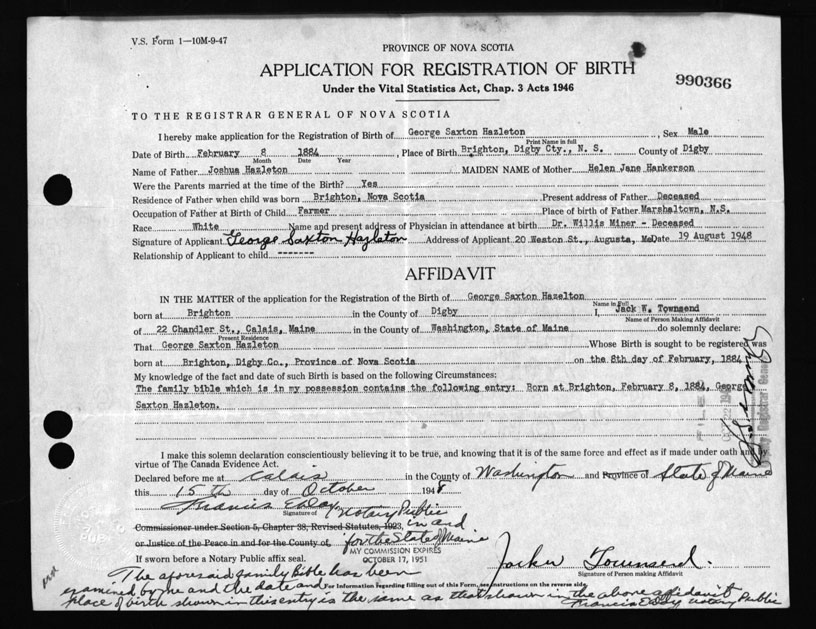 V.S. Form 1—10M-9-47
PROVINCE OF NOVA SCOTIA
APPLICATION FOR REGISTRATION OF BIRTH
990366
Under the Vital Statistics Act, Chap. 3 Acts 1946
TO THE REGISTRAR GENERAL OF NOVA SCOTIA
I hereby make application for the Registration of Birth of George Saxton Hazleton, Sex Male
Print Name in full
Date of Birth February 8 1884, Place of Birth Brighton, Digby Cty., N. S. County of Digby
Month Date Year
Name of Father Joshua Hazleton MAIDEN NAME of Mother Helen Jane Hankerson
Were the Parents married at the time of the Birth? Yes
Residence of Father when child was born Brighton, Nova Scotia Present address of Father Deceased
Occupation of Father at Birth of Child Farmer Place of birth of Father Marshaltown, N.S.
Race White Name and present address of Physician in attendance at birth Dr. Willis Miner - Deceased
Signature of Applicant George Saxton Hazleton Address of Applicant 20 Weston St., Augusta, Me Date 19 August 1948
Relationship of Applicant to child -------
AFFIDAVIT
IN THE MATTER of the application for the Registration of the Birth of George Saxton Hazelton
Name in Full
born at Brighton in the County of Digby I, Jack W. Townsend
Name of Person Making Affidavit
of 22 Chandler St., Calais, Maine in the County of Washington, State of Maine do solemnly declare:
Present Residence
That George Saxton Hazleton Whose Birth is sought to be registered was
born at Brighton, Digby Co., Province of Nova Scotia on the 8th day of February, 1884
My knowledge of the fact and date of such Birth is based on the following Circumstances:
The family bible which is in my possession contains the following entry: Born at Brighton, February 8, 1884, George
Saxton Hazleton.
I make this solemn declaration conscientiously believing it to be true, and knowing that it is of the same force and effect as if made under oath and by
virtue of The Canada Evidence Act.
Declared before me at Calais in the County of Washington and Province of State of Maine
this 15th day of October 1948
Signature of Notary Public
Commissioner under Section 5, Chapter 38, Revised Statutes, 1923, in and
or Justice of the Peace in and for the County of, for the State of Maine
MY COMMISSION EXPIRES
If sworn before a Notary Public affix seal. OCTOBER 17, 1951
Townsend.
Signature of Person making Affidavit
The aforesaid family Bible has been
For Information regarding filling out of this Form, see instructions on the reverse side.
examined by me and the date and
place of birth shown in this entry is the same as that shown in the above affidavit
Notary Public